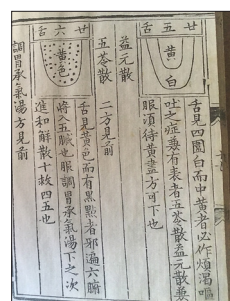 廿五舌
黄
白
舌見四圍白而中黄者必作煩渴嘔
吐之症兼有表者五苓散益元散兼
服須待黄盡方可下也
益元散
五苓散
二方見前
廿六舌
黄色
舌見黄色而有黑點者邪遍六腑
將入五臟也服調胃承氣湯下之次
進和解散十救四五也
調胃承氣湯方見前